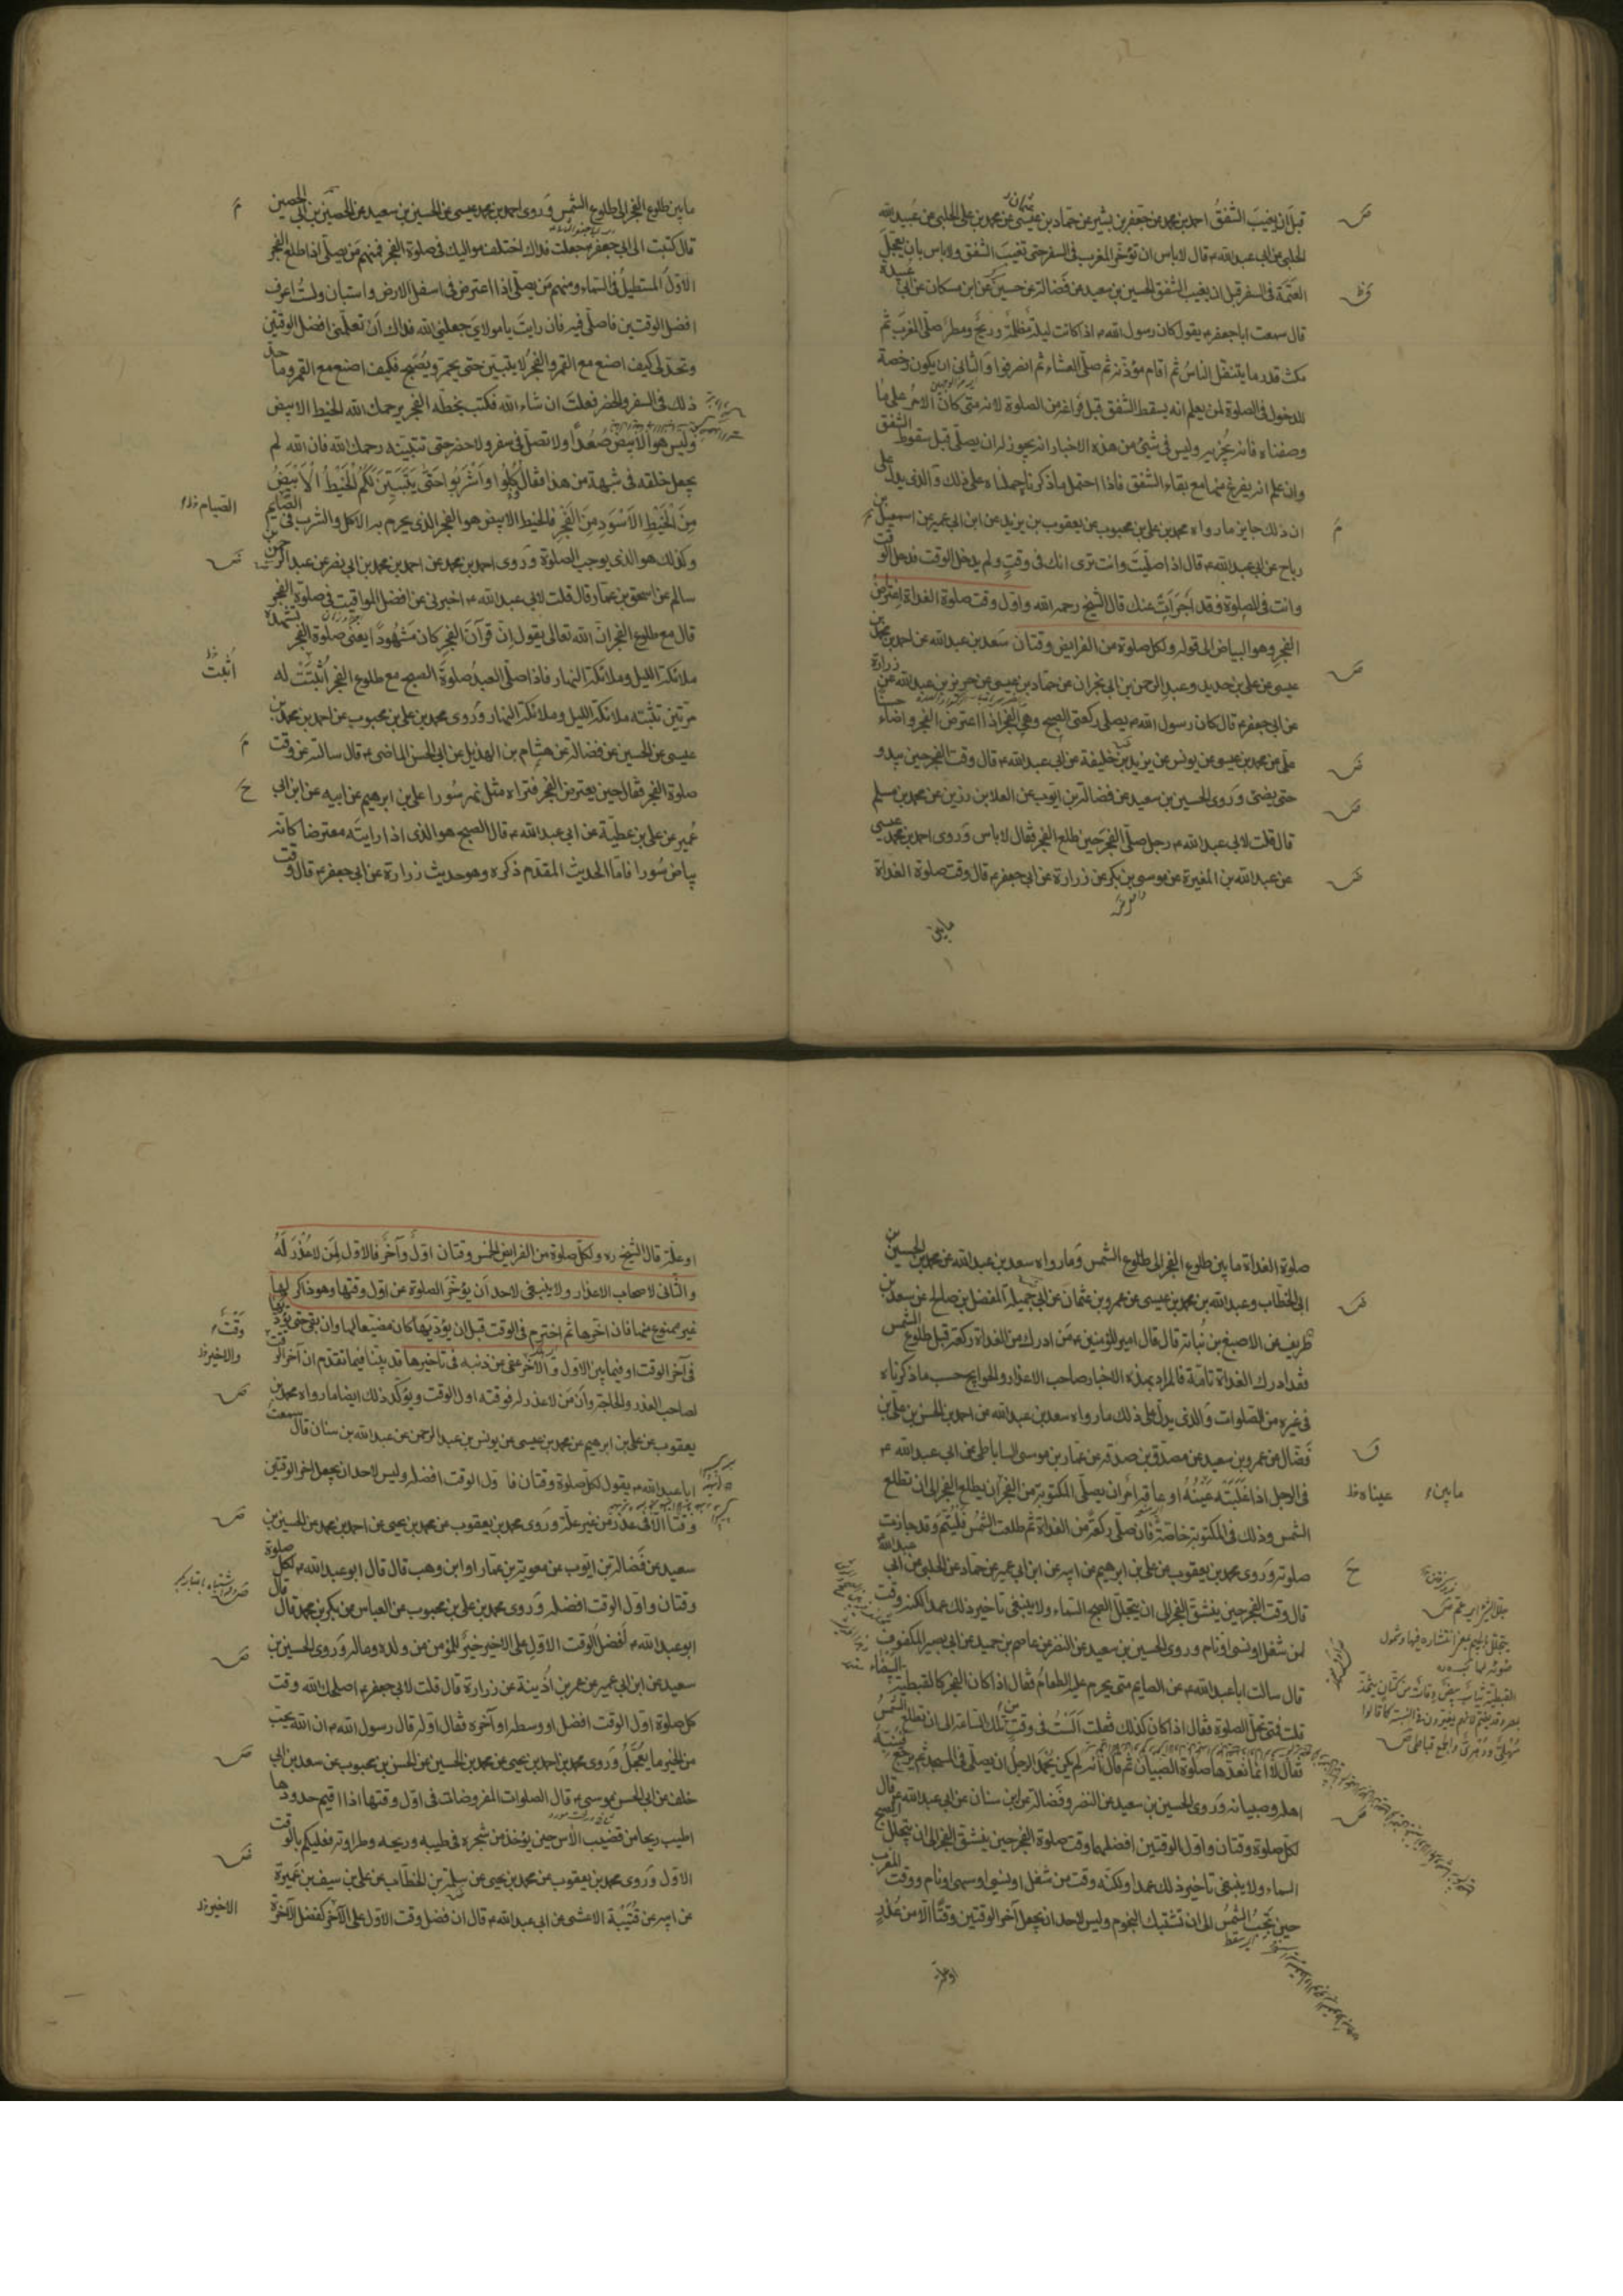 قبل ان يغيب الشفق احمد بن محمد عن جعفر بن بشير عن حماد بن عيسى عن محمد بن علي الحلبي عن عبيد الله
الحلبي عن ابي عبد الله ع قال لا باس ان تؤخر المغرب في السفر حتى تغيب الشفق ولا باس بان يعجل
العتمة في السفر قبل ان يغيب الشفق الحسين بن سعيد عن فضالة عن حسين عن ابن مسكان عن ابي عبيدة
قال سمعت ابا جعفر ع يقول كان رسول الله ص اذا كانت ليلة مظلمة وريح ومطر صلى المغرب ثم
مكث قدر ما يتنفل الناس ثم اقام مؤذنه ثم صلى العشاء ثم انصرفوا والثاني ان يكون رخصة
للدخول في الصلوة لمن يعلم انه يسقط الشفق قبل فراغه من الصلوة لانه متى كان الامر على ما
وصفناه فانه يجزيه وليس في شئ من هذه الاخبار انه يجوز له ان يصلي قبل سقوط الشفق
وان علم انه يفرغ منها مع بقاء الشفق فاذا احتمل ما ذكرناه حملناه على ذلك والذي يدل على
ان ذلك جايز ما رواه محمد بن علي بن محبوب عن يعقوب بن يزيد عن ابن ابي عمير عن اسمعيل بن
رباح عن ابي عبد الله ع قال اذا صليت وانت ترى انك في وقت ولم يدخل الوقت فدخل الوقت
وانت في الصلوة فقد اجزات عنك قال الشيخ رحمه الله واول وقت صلوة الغداة اعتراض
الفجر وهو البياض الى قوله ولكل صلوة من الفرايض وقتان سعد بن عبد الله عن احمد بن محمد بن
عيسى عن علي بن حديد وعبد الرحمن بن ابي نجران عن حماد بن عيسى عن حريز بن عبد الله عن زرارة
عن ابي جعفر ع قال كان رسول الله ص يصلي ركعتي الصبح وهي الفجر اذا اعترض الفجر واضاء حسنا
علي عن محمد بن عيسى عن يونس عن يزيد بن خليفة عن ابي عبد الله ع قال وقت الفجر حين يبدو
حتى يضئ وروى الحسين بن سعيد عن فضالة بن ايوب عن العلا بن رزين عن محمد بن مسلم
قال قلت لابي عبد الله ع رجل صلى الفجر حين طلع الفجر فقال لا باس وروى احمد بن محمد بن عيسى
عن عبد الله بن المغيرة عن موسى بن بكر عن زرارة عن ابي جعفر ع قال وقت صلوة الغداة
مابين
مابين طلوع الفجر الى طلوع الشمس وروى احمد بن محمد بن عيسى عن الحسين بن سعيد عن الحصين بن ابي الحصين
قال كتبت الى ابي جعفر ع جعلت فداك اختلف مواليك في صلوة الفجر فمنهم من يصلي اذا طلع الفجر
الاول المستطيل في السماء ومنهم من يصلي اذا اعترض في اسفل الارض واستبان ولست اعرف
افضل الوقتين فاصلي فيه فان رايت يا مولاي جعلني الله فداك ان تعلمني افضل الوقتين
وتحد لي كيف اصنع مع القمر والفجر لا يتبين حتى يحمر ويصبح فكيف اصنع مع القمر وما حد
ذلك في السفر والحضر فعلت ان شاء الله فكتب بخطه الفجر يرحمك الله الخيط الابيض
وليس هو الابيض صعدا ولا تصل في سفر ولا حضر حتى تتبينه رحمك الله فان الله لم
يجعل خلقه في شبهة من هذا فقال كلوا واشربوا حتى يتبين لكم الخيط الابيض
من الخيط الاسود من الفجر فالخيط الابيض هو الفجر الذي يحرم به الاكل والشرب في الصايم
الصيام
وكذلك هو الذي يوجب الصلوة وروى احمد بن محمد عن احمد بن محمد بن ابي نصر عن عبد الرحمن بن
سالم عن اسحق بن عمار قال قلت لابي عبد الله ع اخبرني عن افضل المواقيت في صلوة الفجر
قال مع طلوع الفجر ان الله تعالى يقول ان قرآن الفجر كان مشهودا يعني صلوة الفجر تشهده
ملائكة الليل وملائكة النهار فاذا صلى العبد صلوة الصبح مع طلوع الفجر اثبتت له
أثبت
مرتين تثبته ملائكة الليل وملائكة النهار وروى محمد بن علي بن محبوب عن احمد بن محمد بن
عيسى عن الحسين عن فضالة عن هشام بن الهذيل عن ابي الحسن الماضي ع قال سالته عن وقت
صلوة الفجر فقال حين يعترض الفجر فتراه مثل نهر سورا علي بن ابرهيم عن ابيه عن ابن ابي
عمير عن علي بن عطية عن ابي عبد الله ع قال الصبح هو الذي اذا رايته معترضا كانه
بياض سورا فاما الحديث المقدم ذكره وهو حديث زرارة عن ابي جعفر ع قال وقت
صلوة الغداة مابين طلوع الفجر الى طلوع الشمس وما رواه سعد بن عبد الله عن محمد بن الحسين بن
ابي الخطاب وعبد الله بن محمد بن عيسى عن عمرو بن عثمان عن ابي جميلة المفضل بن صالح عن سعد بن
طريف عن الاصبغ بن نباتة قال قال امير المؤمنين ع من ادرك من الغداة ركعة قبل طلوع الشمس
فقد ادرك الغداة تامة فالمراد بهذه الاخبار صاحب الاعذار والحوايج حسب ما ذكرناه
في غيره من الصلوات والذي يدل على ذلك ما رواه سعد بن عبد الله عن احمد بن الحسن بن علي بن
فضال عن عمرو بن سعيد عن مصدق بن صدقة عن عمار بن موسى الساباطي عن ابي عبد الله ع
في الرجل اذا غلبته عينه او عاقه امر ان يصلي المكتوبة من الفجر ان يطلع الفجر الى ان تطلع
عيناه
مابين
الشمس وذلك في المكتوبة خاصة فان صلى ركعة من الغداة ثم طلعت الشمس فليتم وقد جازت
صلوته وروى محمد بن يعقوب عن علي بن ابرهيم عن ابيه عن ابن ابي عمير عن حماد عن الحلبي عن ابي عبد الله
قال وقت الفجر حين ينشق الفجر الى ان يتجلل الصبح السماء ولا ينبغي تاخير ذلك عمدا لكنه وقت
لمن شغل او نسى او نام وروى الحسين بن سعيد عن النضر عن عاصم بن حميد عن ابي بصير المكفوف
قال سالت ابا عبد الله ع عن الصايم متى يحرم عليه الطعام فقال اذا كان الفجر كالقبطية البيضاء
قلت فمتى تحل الصلوة فقال اذا كان كذلك فقلت الست في وقت من تلك الساعة الى ان تطلع الشمس
فقال لا انما نعدها صلوة الصبيان ثم قال انه لم يكن يحمد الرجل ان يصلي في المسجد ثم يرجع فينبه
اهله وصبيانه وروى الحسين بن سعيد عن النضر وفضالة عن ابن سنان عن ابي عبد الله ع قال
لكل صلوة وقتان واول الوقتين افضلهما وقت صلوة الفجر حين ينشق الفجر الى ان يتجلل الصبح
السماء ولا ينبغي تاخير ذلك عمدا ولكنه وقت من شغل او نسي او سهى او نام ووقت المغرب
حين تجب الشمس الى ان تشتبك النجوم وليس لاحد ان يجعل آخر الوقتين وقتا الا من عذر
او علة
او علة قال الشيخ ره ولكل صلوة من الفرايض الخمس وقتان اول وآخر فالاول لمن لا عذر له
والثاني لاصحاب الاعذار ولا ينبغي لاحد ان يؤخر الصلوة عن اول وقتها وهو ذاكر لها
غير ممنوع منها فان اخرها ثم اخترم في الوقت قبل ان يؤديها كان مضيعا لها وان بقي حتى يؤديها
في آخر الوقت او فيما بين الاول والآخر عفى من ذنبه في تاخيرها قد بينا فيما تقدم ان آخر الوقت
والاخير
لصاحب العذر والحاجة وان من لا عذر له فوقته اول الوقت ويؤكد ذلك ايضا ما رواه محمد بن
يعقوب عن علي بن ابرهيم عن محمد بن عيسى عن يونس بن عبد الرحمن عن عبد الله بن سنان قال سمعت
ابا عبد الله ع يقول لكل صلوة وقتان فاول الوقت افضله وليس لاحد ان يجعل اخر الوقتين
وقتا الا في عذر من غير علة وروى محمد بن يعقوب عن محمد بن يحيى عن احمد بن محمد عن الحسين بن
سعيد عن فضالة بن ايوب عن معوية بن عمار او ابن وهب قال قال ابو عبد الله ع لكل صلوة
وقتان واول الوقت افضله وروى محمد بن علي بن محبوب عن العباس عن بكر بن محمد قال قال
ابو عبد الله ع لفضل الوقت الاول على الاخير خير للمؤمن من ولده وماله وروى الحسين بن
سعيد عن ابن ابي عمير عن عمر بن اذينة عن زرارة قال قلت لابي جعفر ع اصلحك الله وقت
كل صلوة اول الوقت افضل او وسطه او آخره فقال اوله قال رسول الله ص ان الله يحب
من الخير ما يعجل وروى محمد بن احمد بن يحيى عن محمد بن الحسين عن الحسن بن محبوب عن سعد بن ابي
خلف عن ابي الحسن موسى ع قال الصلوات المفروضات في اول وقتها اذا اقيم حدودها
اطيب ريحا من قضيب الآس حين يؤخذ من شجره في طيبه وريحه وطراوته فعليكم بالوقت
الاول وروى محمد بن يعقوب عن محمد بن يحيى عن سلمة بن الخطاب عن علي بن سيف بن عميرة
عن ابيه عن قتيبة الاعشى عن ابي عبد الله ع قال ان فضل وقت الاول على الآخر كفضل الآخرة
الاخير